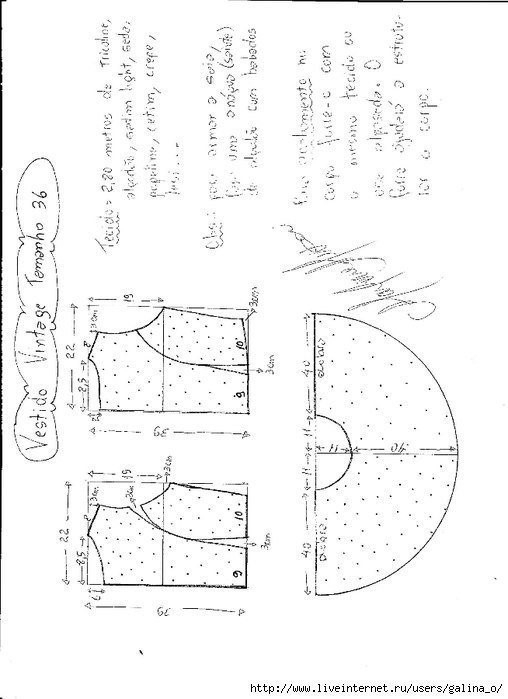 Vestido Vintage Tamanho 36
Tecido = 2,80 metros de tricoline,
algodão, cetim light, seda,
cetim, crepe,
Obs: para armar a saia,
faça uma anágua (saiote)
de algodão com babados
Para acabamento no
corpo forre-o com
o mesmo tecido ou
O
forro ajudará a estrutu-
rar o corpo.
22
8,5
8
3cm
19
3cm
2
39
9
10
3cm
22
8,5
8
3cm
19
3cm
39
9
10
3cm
40
11
11
40
11
40
http://www.liveinternet.ru/users/galina_o/